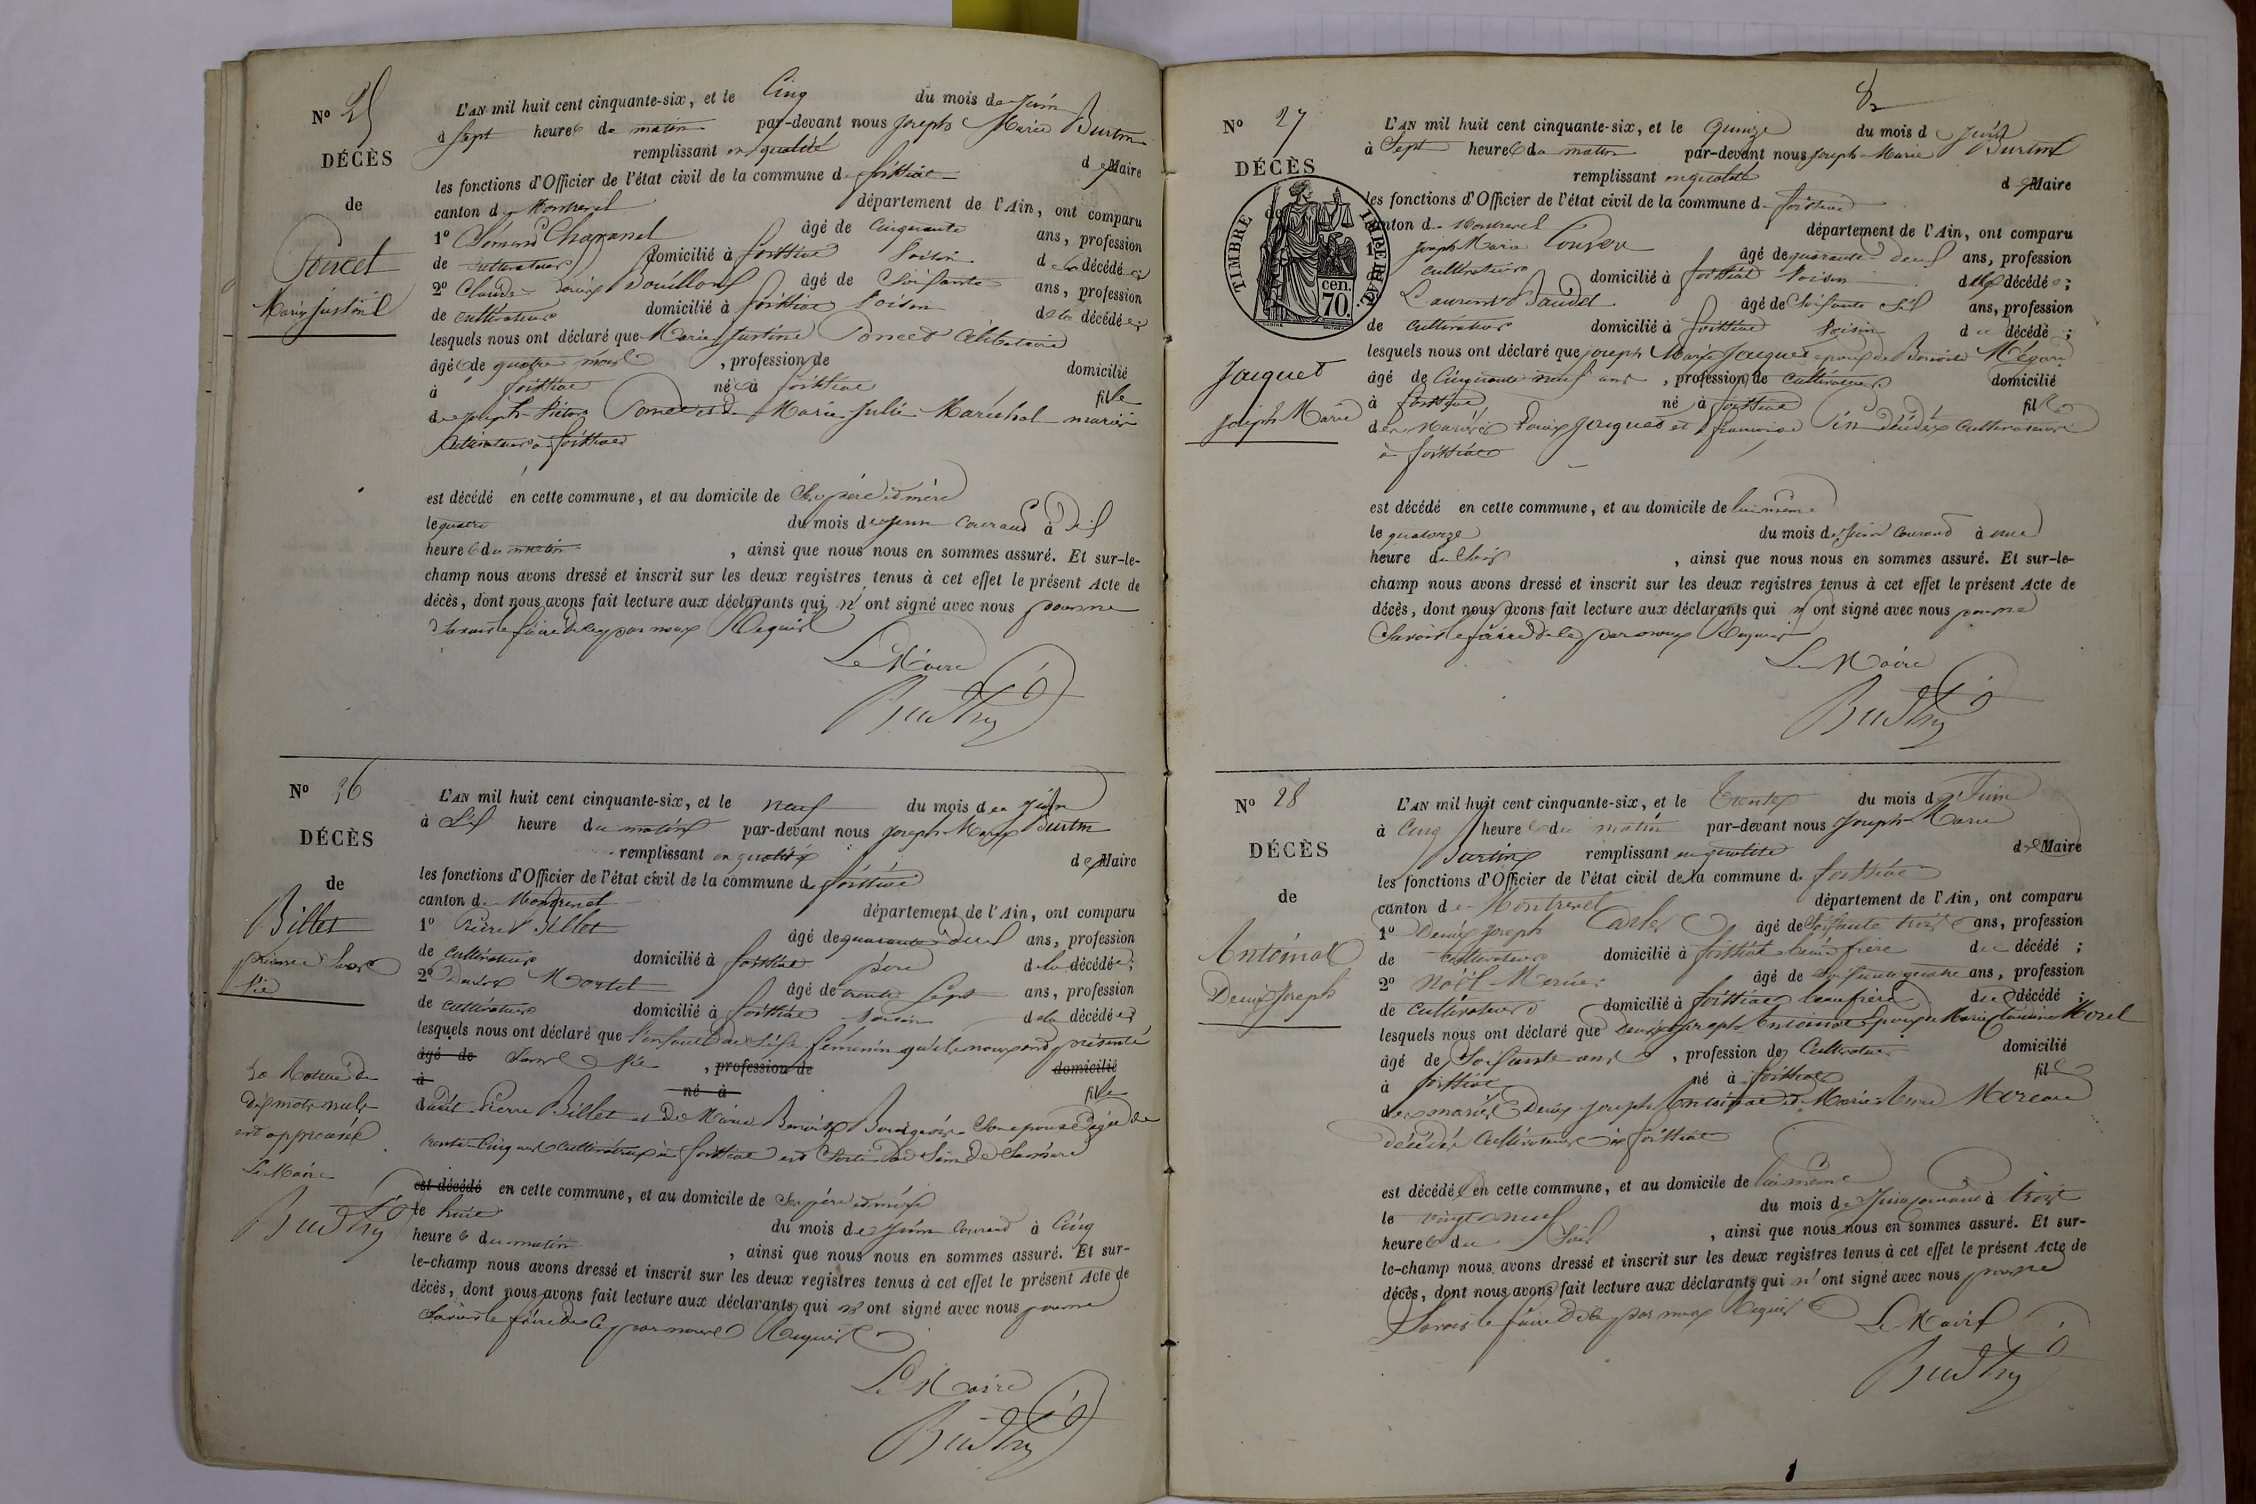 Nº 25
DÉCÈS
de
Poncet
Marie Justine
L'AN mil huit cent cinquante-six, et le Cinq du mois de Juin
à Sept heures du matin par-devant nous Joseph Marie Burtin
remplissant en qualité de Maire
les fonctions d'Officier de l'état civil de la commune de foissiat
canton de Montrevel département de l'Ain, ont comparu
1º Chapanel âgé de Cinquante ans, profession
de cultivateur domicilié à foissiat voisin de la décédée
2º Claude Louis Bouilloux âgé de Soixante ans, profession
de cultivateur domicilié à foissiat voisin de la décédée
lesquels nous ont déclaré que Marie Justine Poncet Célibataire
âgée de quatre mois , profession de domicilié
à foissiat née à foissiat fille
de Joseph Poncet et de Marie Julie Maréchal mariés
cultivateurs à foissiat
est décédé en cette commune, et au domicile de Ses père et mère
le quatre du mois de juin courant à Dix
heures du matin , ainsi que nous nous en sommes assuré. Et sur-le-
champ nous avons dressé et inscrit sur les deux registres tenus à cet effet le présent Acte de
décès, dont nous avons fait lecture aux déclarants qui n'ont signé avec nous pour ne
Savoir le faire de ce par nous Requis
Le Maire
Burtin
Nº 26
DÉCÈS
de
Billet
Sans
Vie
La Rature de
Dix mots nuls
est approuvée
Le Maire
Burtin
L'AN mil huit cent cinquante-six, et le neuf du mois de Juin
à Six heure du matin par-devant nous Joseph Marie Burtin
remplissant en qualité de Maire
les fonctions d'Officier de l'état civil de la commune de foissiat
canton de Montrevel département de l'Ain, ont comparu
1º Pierre Billet âgé de quarante deux ans, profession
de cultivateur domicilié à foissiat père de la décédée;
2º Mortel âgé de trente Sept ans, profession
de cultivateur domicilié à foissiat voisin de la décédée
lesquels nous ont déclaré que l'enfant du Sexe féminin qu'ils nous ont présenté
âgé de Sans Vie , profession de domicilié
à né à fille
dudit Pierre Billet et De Marie Benoite Bourgeois Son épouse âgée de
trente Cinq ans Cultivateurs à foissiat est Sorti du Sein De Sa mère
est décédé en cette commune, et au domicile de Ses père et mère
le huit du mois de Juin Courant à Cinq
heures du matin , ainsi que nous nous en sommes assuré. Et sur-
le-champ nous avons dressé et inscrit sur les deux registres tenus à cet effet le présent Acte de
décès, dont nous avons fait lecture aux déclarants qui n'ont signé avec nous pour ne
Savoir le faire de ce par nous Requis
Le Maire
Burtin
8
Nº 27
DÉCÈS
de
TIMBRE IMPÉRIAL
70 cen.
Jacquet
Joseph Marie
L'AN mil huit cent cinquante-six, et le Quinze du mois de Juin
à Sept heures du matin par-devant nous Joseph Marie Burtin
remplissant en qualité de Maire
les fonctions d'Officier de l'état civil de la commune de foissiat
canton de Montrevel département de l'Ain, ont comparu
1º Joseph Marie âgé de quarante deux ans, profession
cultivateur domicilié à foissiat voisin du décédé;
Laurent Baudet âgé de Soixante Six ans, profession
de cultivateur domicilié à foissiat voisin du décédé;
lesquels nous ont déclaré que Joseph Marie Jacquet époux de Benoite
âgé de Cinquante neuf ans , profession de cultivateur domicilié
à foissiat né à foissiat fils
des Mariés Louis Jacquet et françoise décédés Cultivateurs
à foissiat
est décédé en cette commune, et au domicile de lui même
le quatorze du mois de Juin Courant à une
heure du Soir , ainsi que nous nous en sommes assuré. Et sur-le-
champ nous avons dressé et inscrit sur les deux registres tenus à cet effet le présent Acte de
décès, dont nous avons fait lecture aux déclarants qui n'ont signé avec nous pour ne
Savoir le faire de ce par nous Requis
Le Maire
Burtin
Nº 28
DÉCÈS
de
Antoinat
Denis Joseph
L'AN mil huit cent cinquante-six, et le Trente du mois de Juin
à Cinq heures du matin par-devant nous Joseph Marie
Burtin remplissant en qualité de Maire
les fonctions d'Officier de l'état civil de la commune de foissiat
canton de Montrevel département de l'Ain, ont comparu
1º Denis Joseph âgé de Soixante trois ans, profession
de Cultivateur domicilié à foissiat beau frère du décédé;
2º Noël Mercier âgé de Soixante quatre ans, profession
de Cultivateur domicilié à foissiat beau frère du décédé;
lesquels nous ont déclaré que Denis Joseph Antoinat Époux de Marie Claudine Morel
âgé de Soixante ans , profession de Cultivateur domicilié
à foissiat né à foissiat fils
des mariés Denis Joseph Antoinat et Marie Anne Moreau
décédés Cultivateurs à foissiat
est décédé en cette commune, et au domicile de lui même
le vingt neuf du mois de Juin courant à trois
heures du Soir , ainsi que nous nous en sommes assuré. Et sur-
le-champ nous avons dressé et inscrit sur les deux registres tenus à cet effet le présent Acte de
décès, dont nous avons fait lecture aux déclarants qui n'ont signé avec nous pour ne
Savoir le faire de ce par nous Requis
Le Maire
Burtin